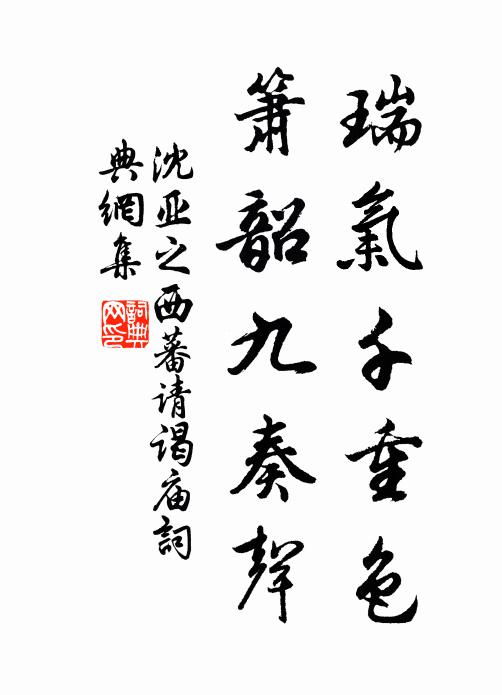 瑞氣千重色
簫韶九奏聲
沈亚之西蕃请谒庙詞
典網集
詞典网印